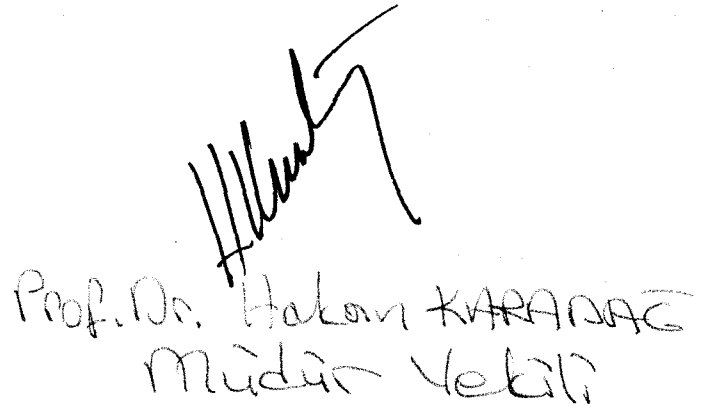 Prof. Dr. Hakan KARADAĞ
Müdür Vekili